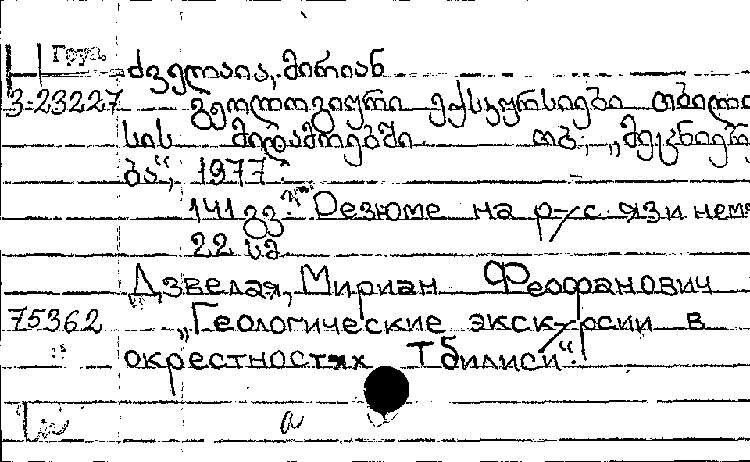 Груз.
ძველაია, მირიან
3-23227 გეოლოგიური ექსკურსიები თბილი
სის მიდამოებში. თბ., „მეცნიერ
ბა“, 1977.
141 გვ. Резюме на рус. яз и нем
22 სმ
Дзвелая, Мириан Феофанович
75362 „Геологические экскурсии в
окрестностях Тбилиси“.
а